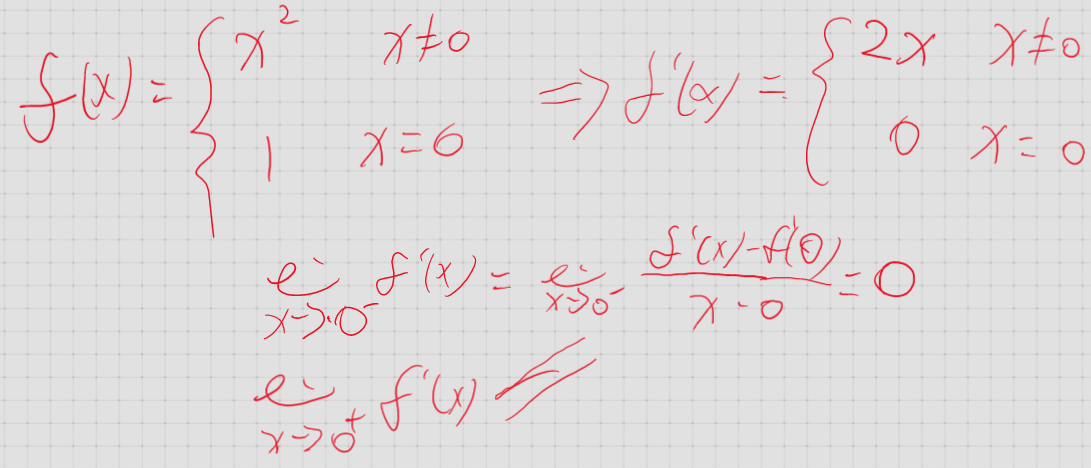 f(x) = { x² x≠0 ⇒ f'(x) = { 2x x≠0
1 x=0 0 x=0
lim x→0⁻ f'(x) = lim x→0⁻ (f'(x)-f'(0))/(x-0) = 0
lim x→0⁺ f'(x) =